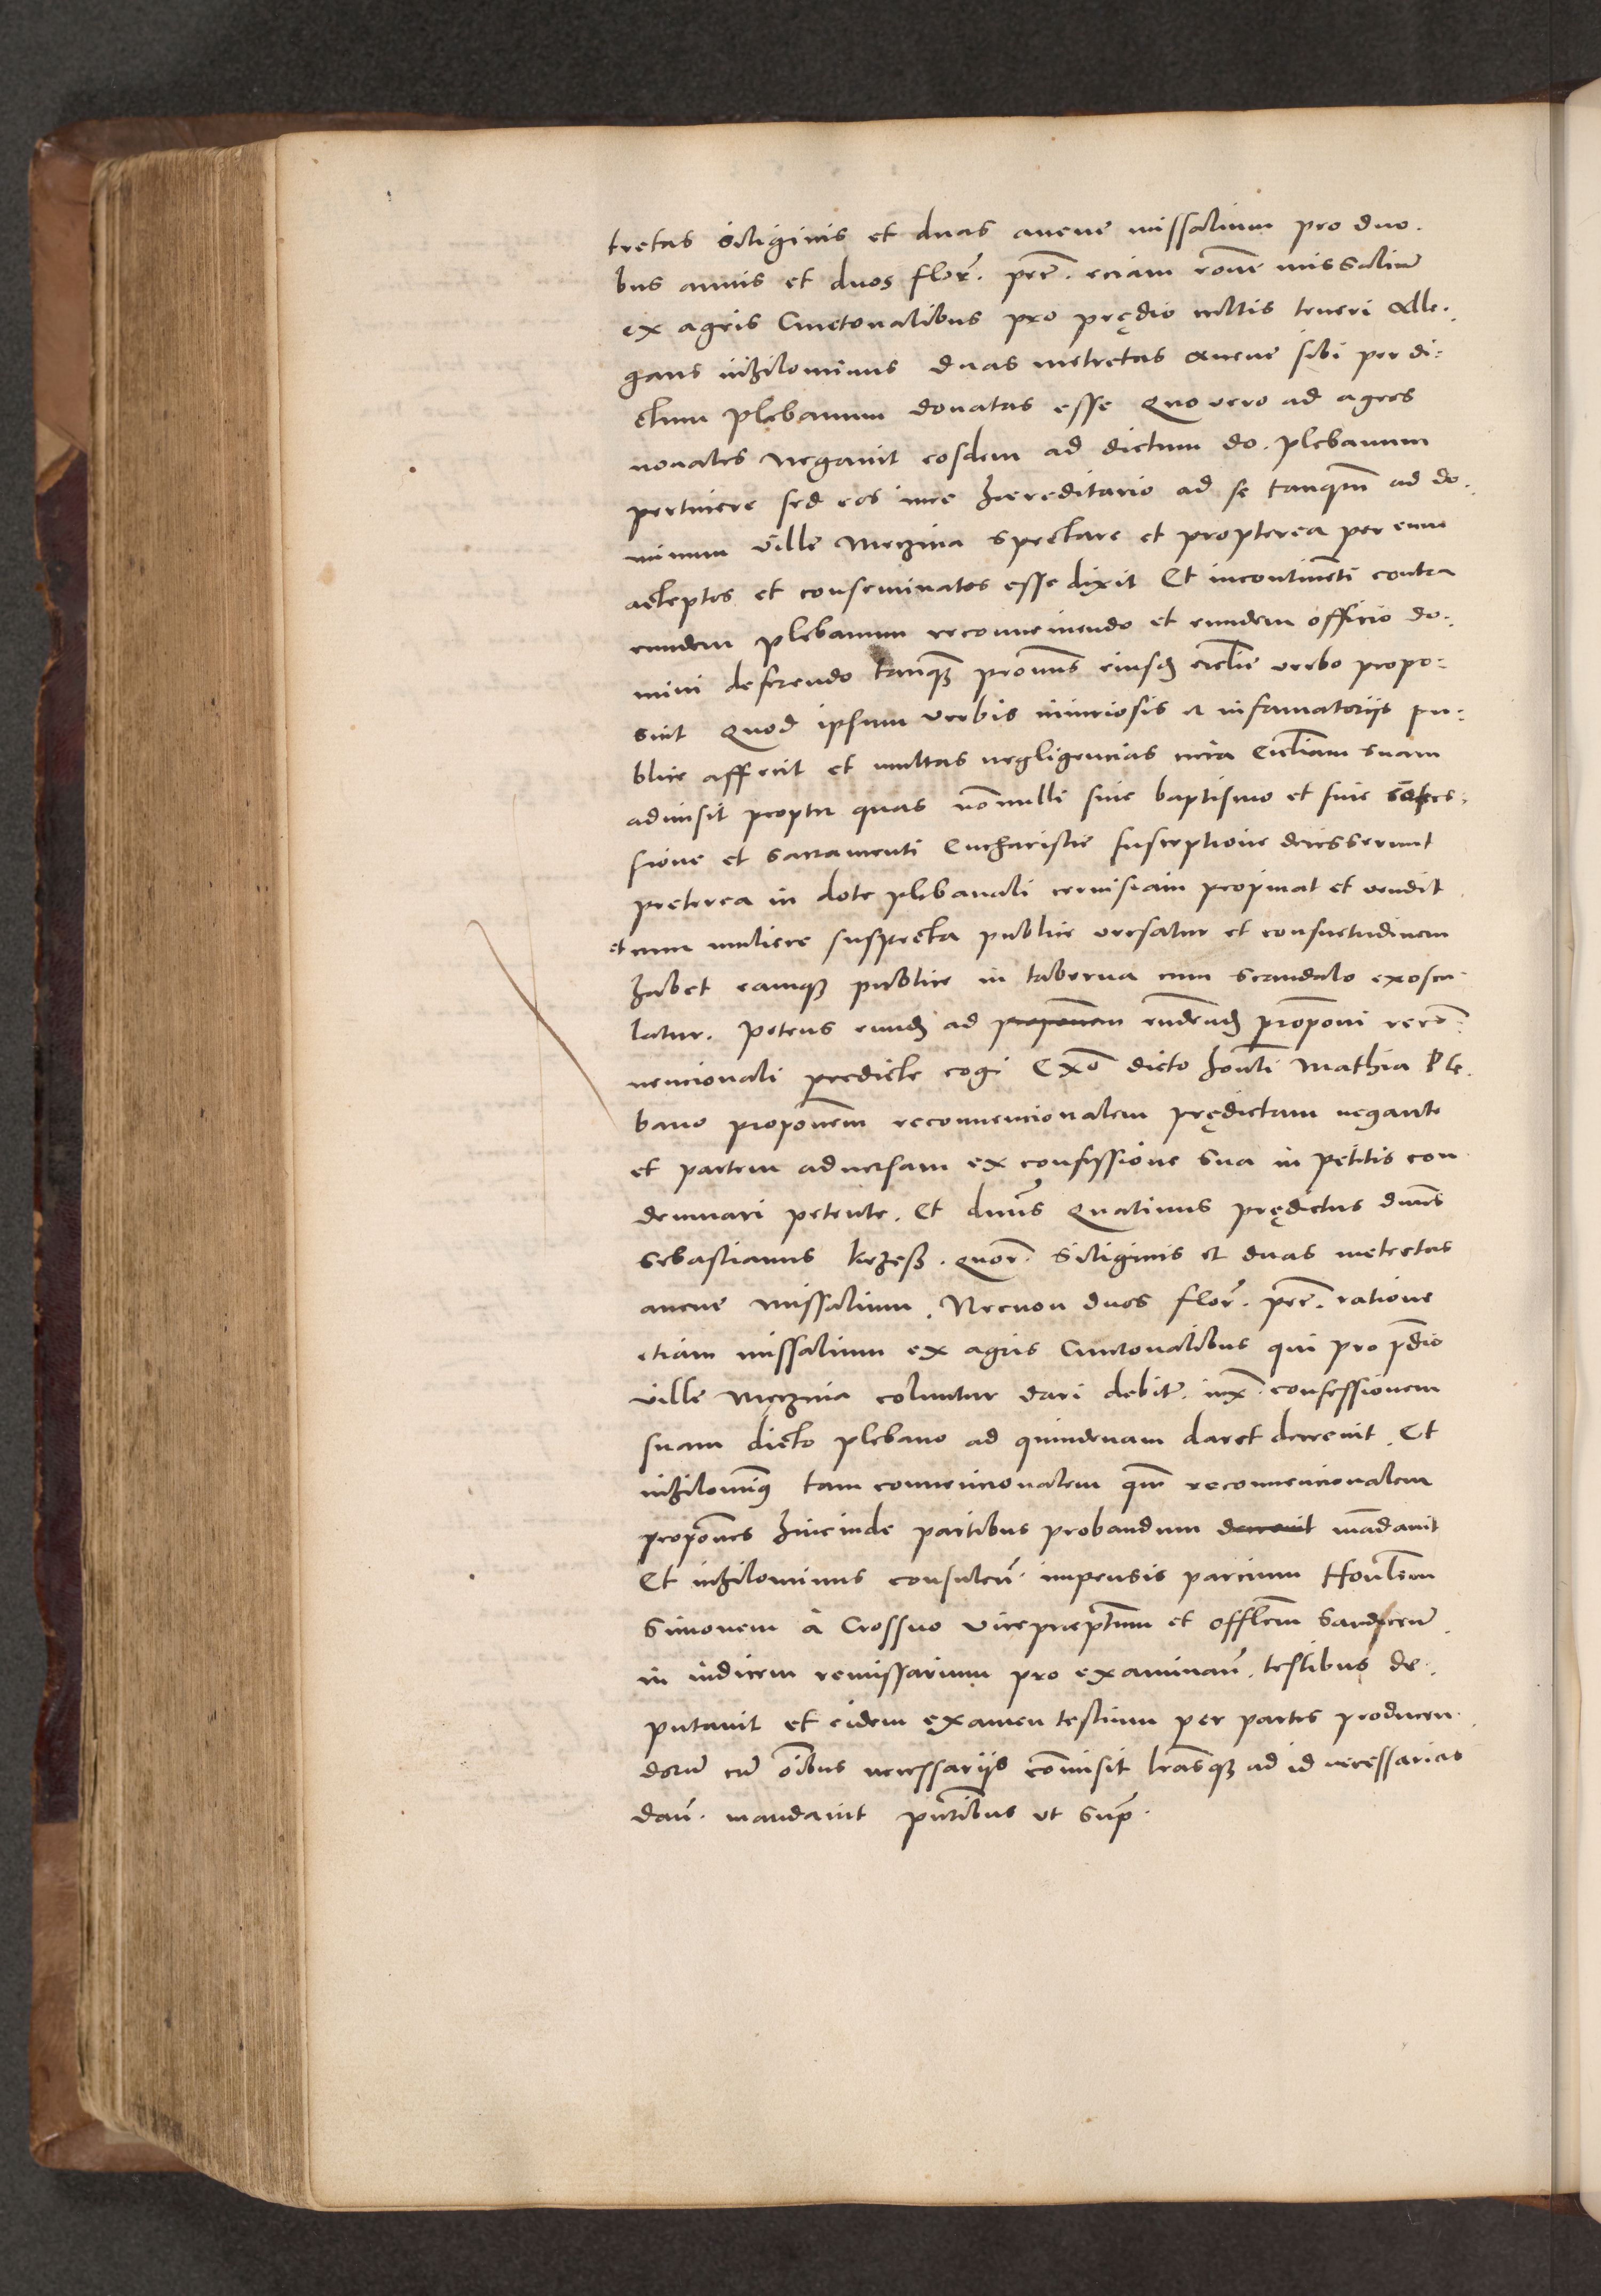 tretas siliginis et duas avene missalium pro duo.
bus annis et duos flor̃. pec̃. eciam rõne missaliũ
ex agris Cmetonalibus pro prędio cultis teneri alle.
gans nihilominus duas metretas avene sibi per di=
ctum plebanum donatas esse Quo vero ad agros
novales negavit eosdem ad dictum do. plebanum
pertinere sed eos iure hæreditario ad se tanqm̃ ad do.
minum ville Mczina spectare et propterea per eum
adeptos et conseminatos esse dixit Et incontinẽti contra
eundem plebanum reconveniendo et eundem officio do.
mini deferendo tanqȝ eiusdȝ eccl̃ie verbo propo=
suit Quod ipsum verbis iniuriosis et infamatorijs pu=
blice affecit et multas negligencias circa Eccl̃iam suam
admisit propter quas nõnulli sine baptismo et sine cõfes=
sione et sacramenti Eucharistie susceptione decesserunt
preterea in dote plebanali cervisiam propinat et vendit
et cum muliere suspecta publice versatur et consuetudinem
habet eamqȝ publice in taberna cum scandalo exoscu
latur. Petens eundȝ ad propõnem rñdendȝ prõponi recõ=
vencionali predicte cogi Exõ dicto hon̄li Mathia Ple.
bano propõnem reconvencionalem prędictam negante
et partem adversam ex confessione sua in petitis con
demnari petente. Et dnũs Quatinus prędictus dnũs
Sebastianus . quor̃. siliginis et duas metretas
avene missalium. Necnon duos flor̃. pec̃. ratione
etiam missalium ex agris Cmetonalibus qui pro p̃dio
ville Męczina coluntur dari debit̃. iux̃. confessionem
suam dicto plebano ad quindenam daret decrevit. Et
nihilominꝰ tam convencionalem qm̃ reconvencionalem
propõnes hincinde partibus probandum decrevit mãdavit
Et nihilominus consulen̄. impensis parcium Hon̄lem
Simonem à Crossno vicepreptũm et offlẽm Sandecen̄.
in iudicem remissarium pro examinan̄. testibus de.
putavit et eidem examen testium per partes producen.
dorũ cũ oĩbus necessarijs cõmisit lr̃asqȝ ad id necessarias
dan̄. mandavit pñtibus ut sup̃.